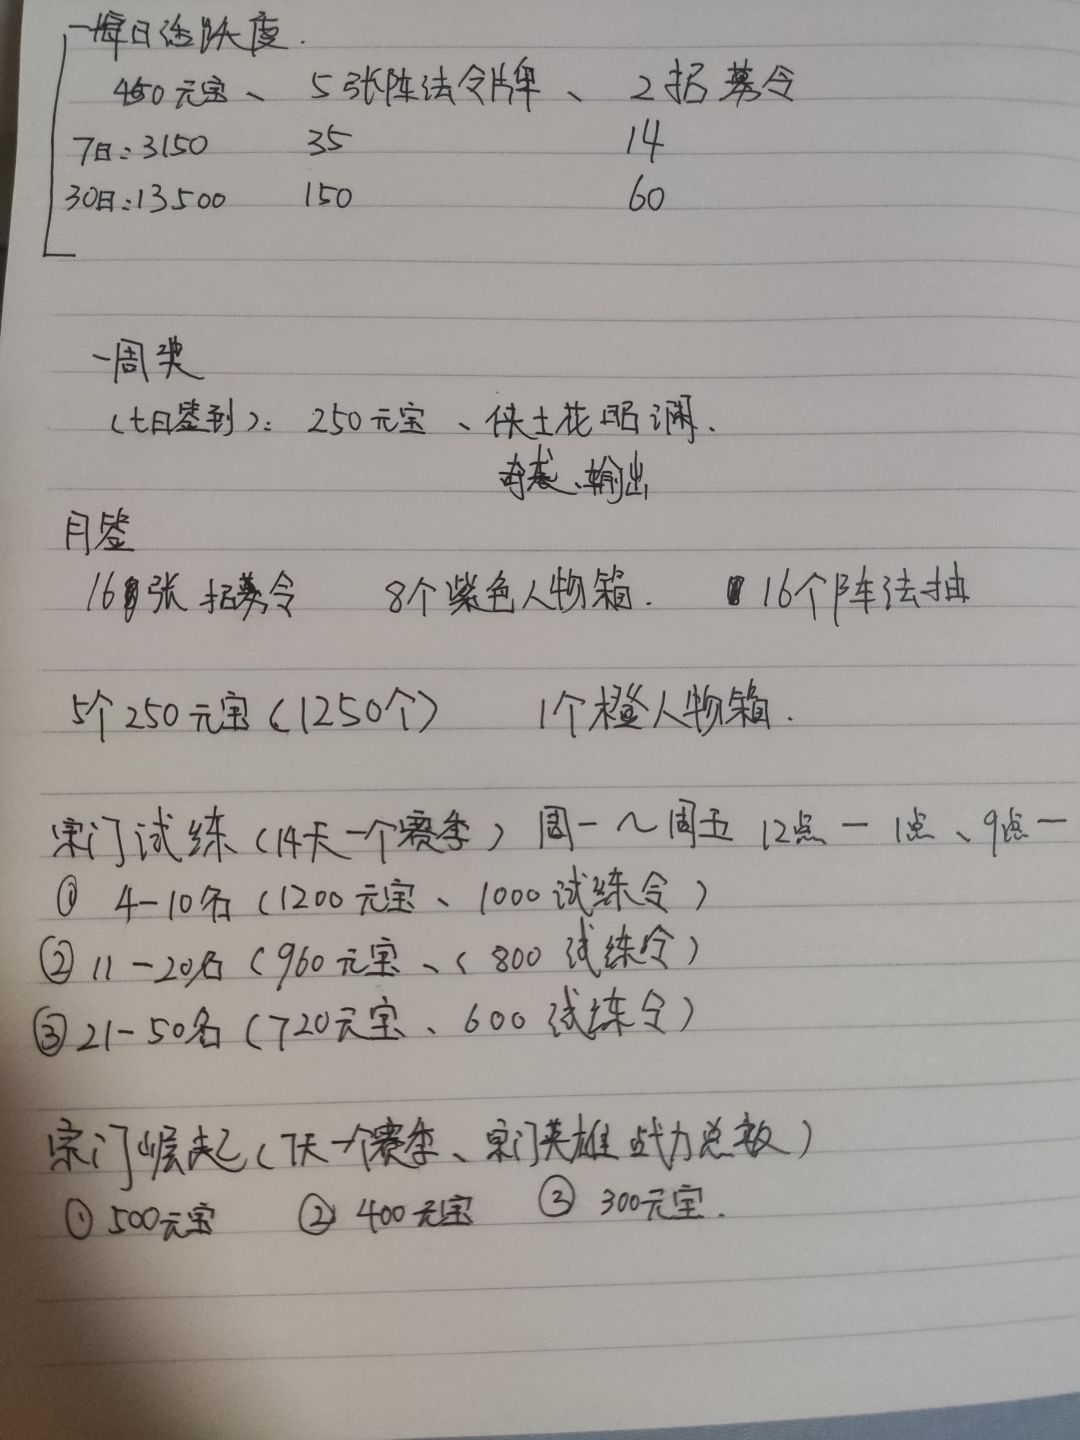 一每日活跃度.
450元宝、 5张阵法令牌、 2招募令
7日:3150 35 14
30日:13500 150 60
一周类
(七日签到): 250元宝、侠士花昭澜.
奇袭、输出
月签
16张招募令 8个紫色人物箱. 16个阵法抽
5个250元宝(1250个) 1个橙人物箱.
宗门试练(14天一个赛季) 周一~周五 12点-1点、9点-
① 4-10名(1200元宝、1000试练令)
② 11-20名(960元宝、(800试练令)
③ 21-50名(720元宝、600试练令)
宗门崛起(7天一个赛季、宗门英雄战力总数)
① 500元宝 ② 400元宝 ③ 300元宝.